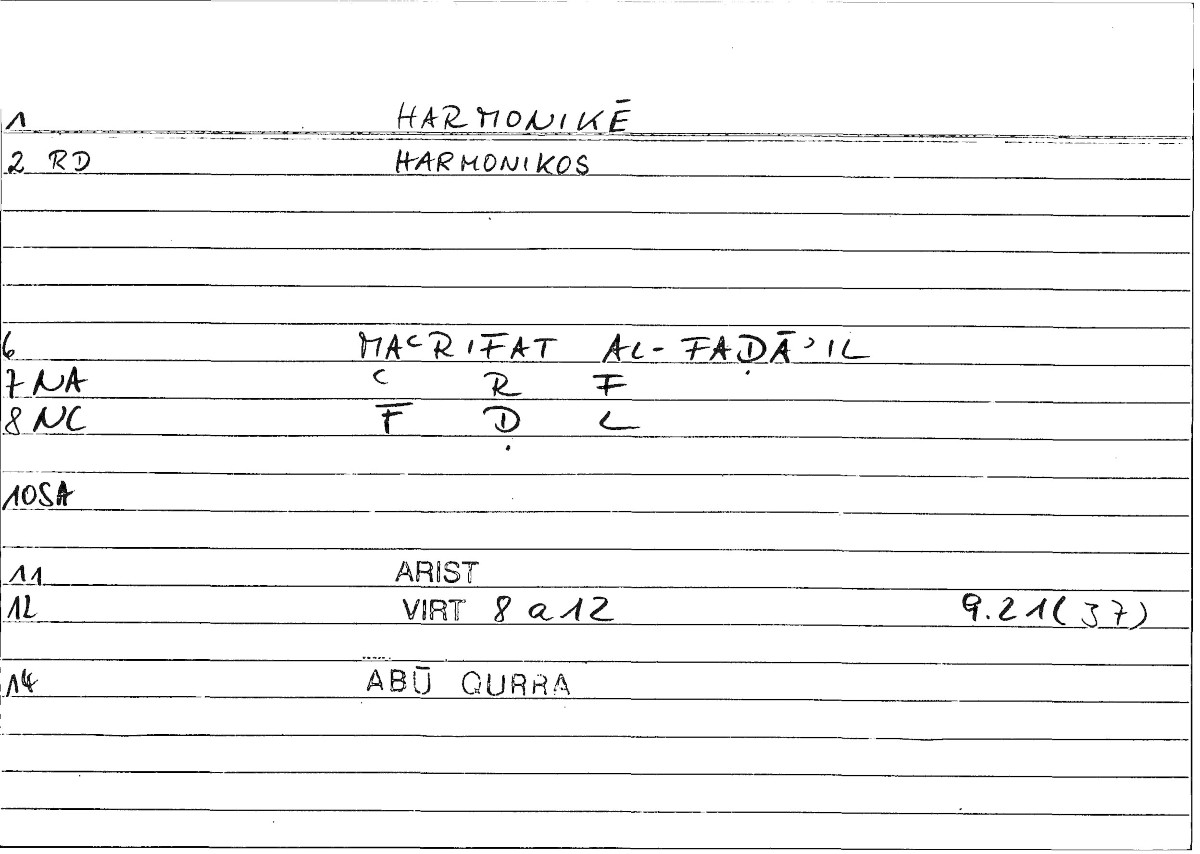 1 HARMONIKĒ
2 RD HARMONIKOS
6 MAᶜRIFAT AL-FAḌĀʾIL
7 NA ᶜ R F
8 NC F Ḍ L
10SA
11 ARIST
12 VIRT 8 a 12 9.21(37)
14 ABŪ QURRA